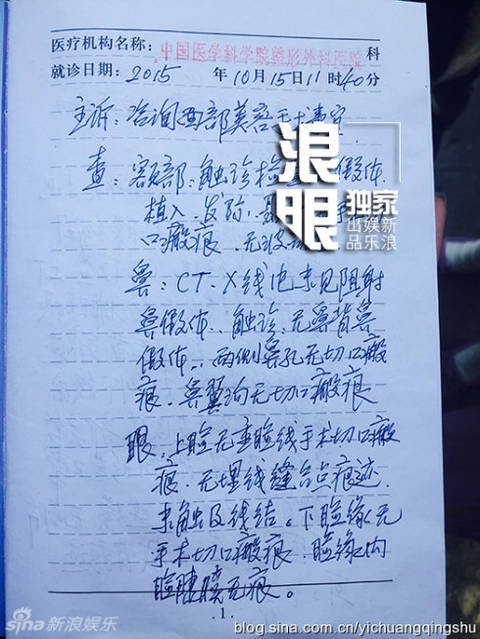 医疗机构名称: 中国医学科学院整形外科医院 科
就诊日期: 2015 年 10月15日11时40分
主诉: 咨询面部美容手术
查: 额部: 触诊 假体
植入. 发际.
口瘢痕. 无
浪眼
独家
出娱新
品乐浪
鼻: CT. X线 未见阻射
鼻假体. 触诊: 无鼻背鼻
假体. 两侧鼻孔无切口瘢
痕. 鼻翼沟无切口瘢痕
眼. 上睑无重睑线手术切口瘢
痕. 无埋线缝合点痕迹.
未触及线结。下睑缘无
手术切口瘢痕. 睑缘内
睑睫膜无痕。
1
sina新浪娱乐
blog.sina.com.cn/yichuangqingshu